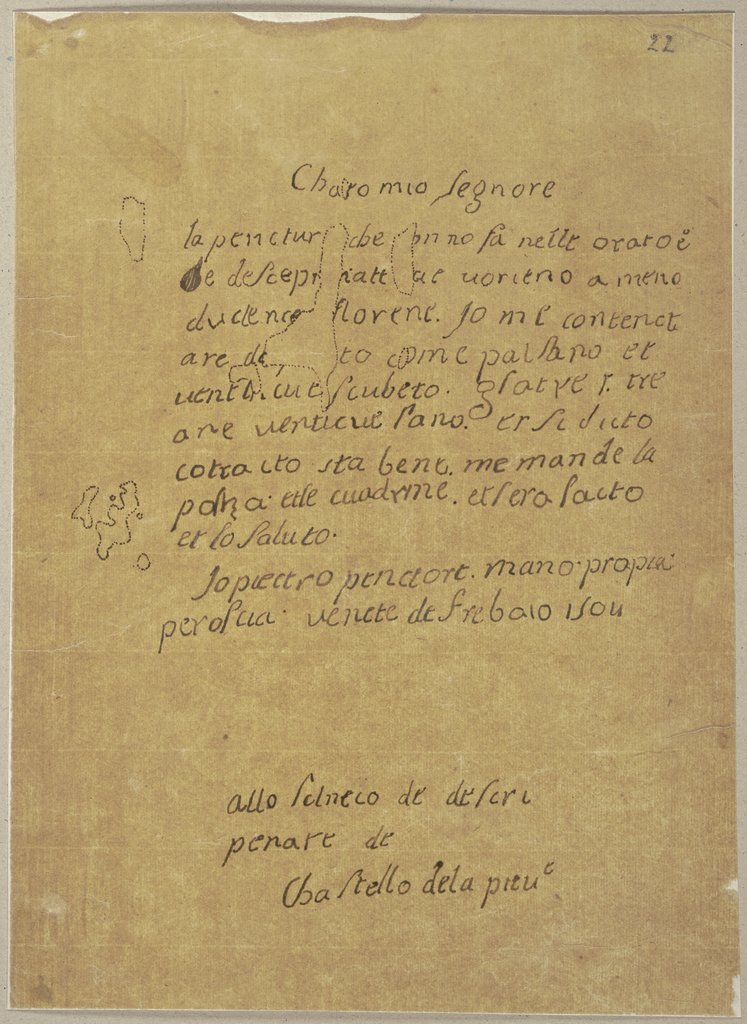 22
Charo mio segnore
la penctur che onno fa nelle orato
de descepr natte ae vorieno a meno
ducence florene. Jo me contenct
are de to come paesano et
scubeto. tre
are venticue sano. et si dicto
cotracto sta bene. me mande la
et le cuadrine. et sera facto
et lo saluto.
Jo piectro penctore. mano propia
peroscia. venete de frebaio 1504
allo scineco de descri
penate de
Chastello dela pieue